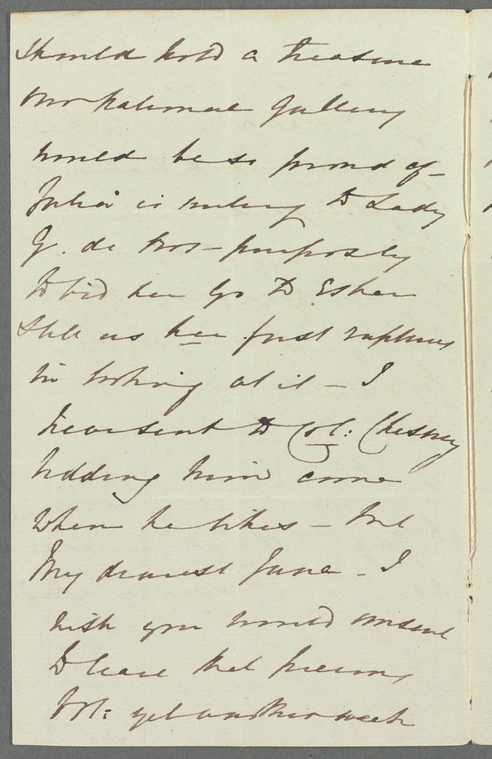 should hold a treasure
our National Gallery
would be so proud of –
Julia is writing to Lady
G. de Ros – purposely
to bid her go to Esher
still us her first raptures
in looking at it – I
have sent to Col: Chesney
bidding him come
when he likes – but
My dearest Jane – I
wish you would consent
to leave that precious
Vol: yet another week